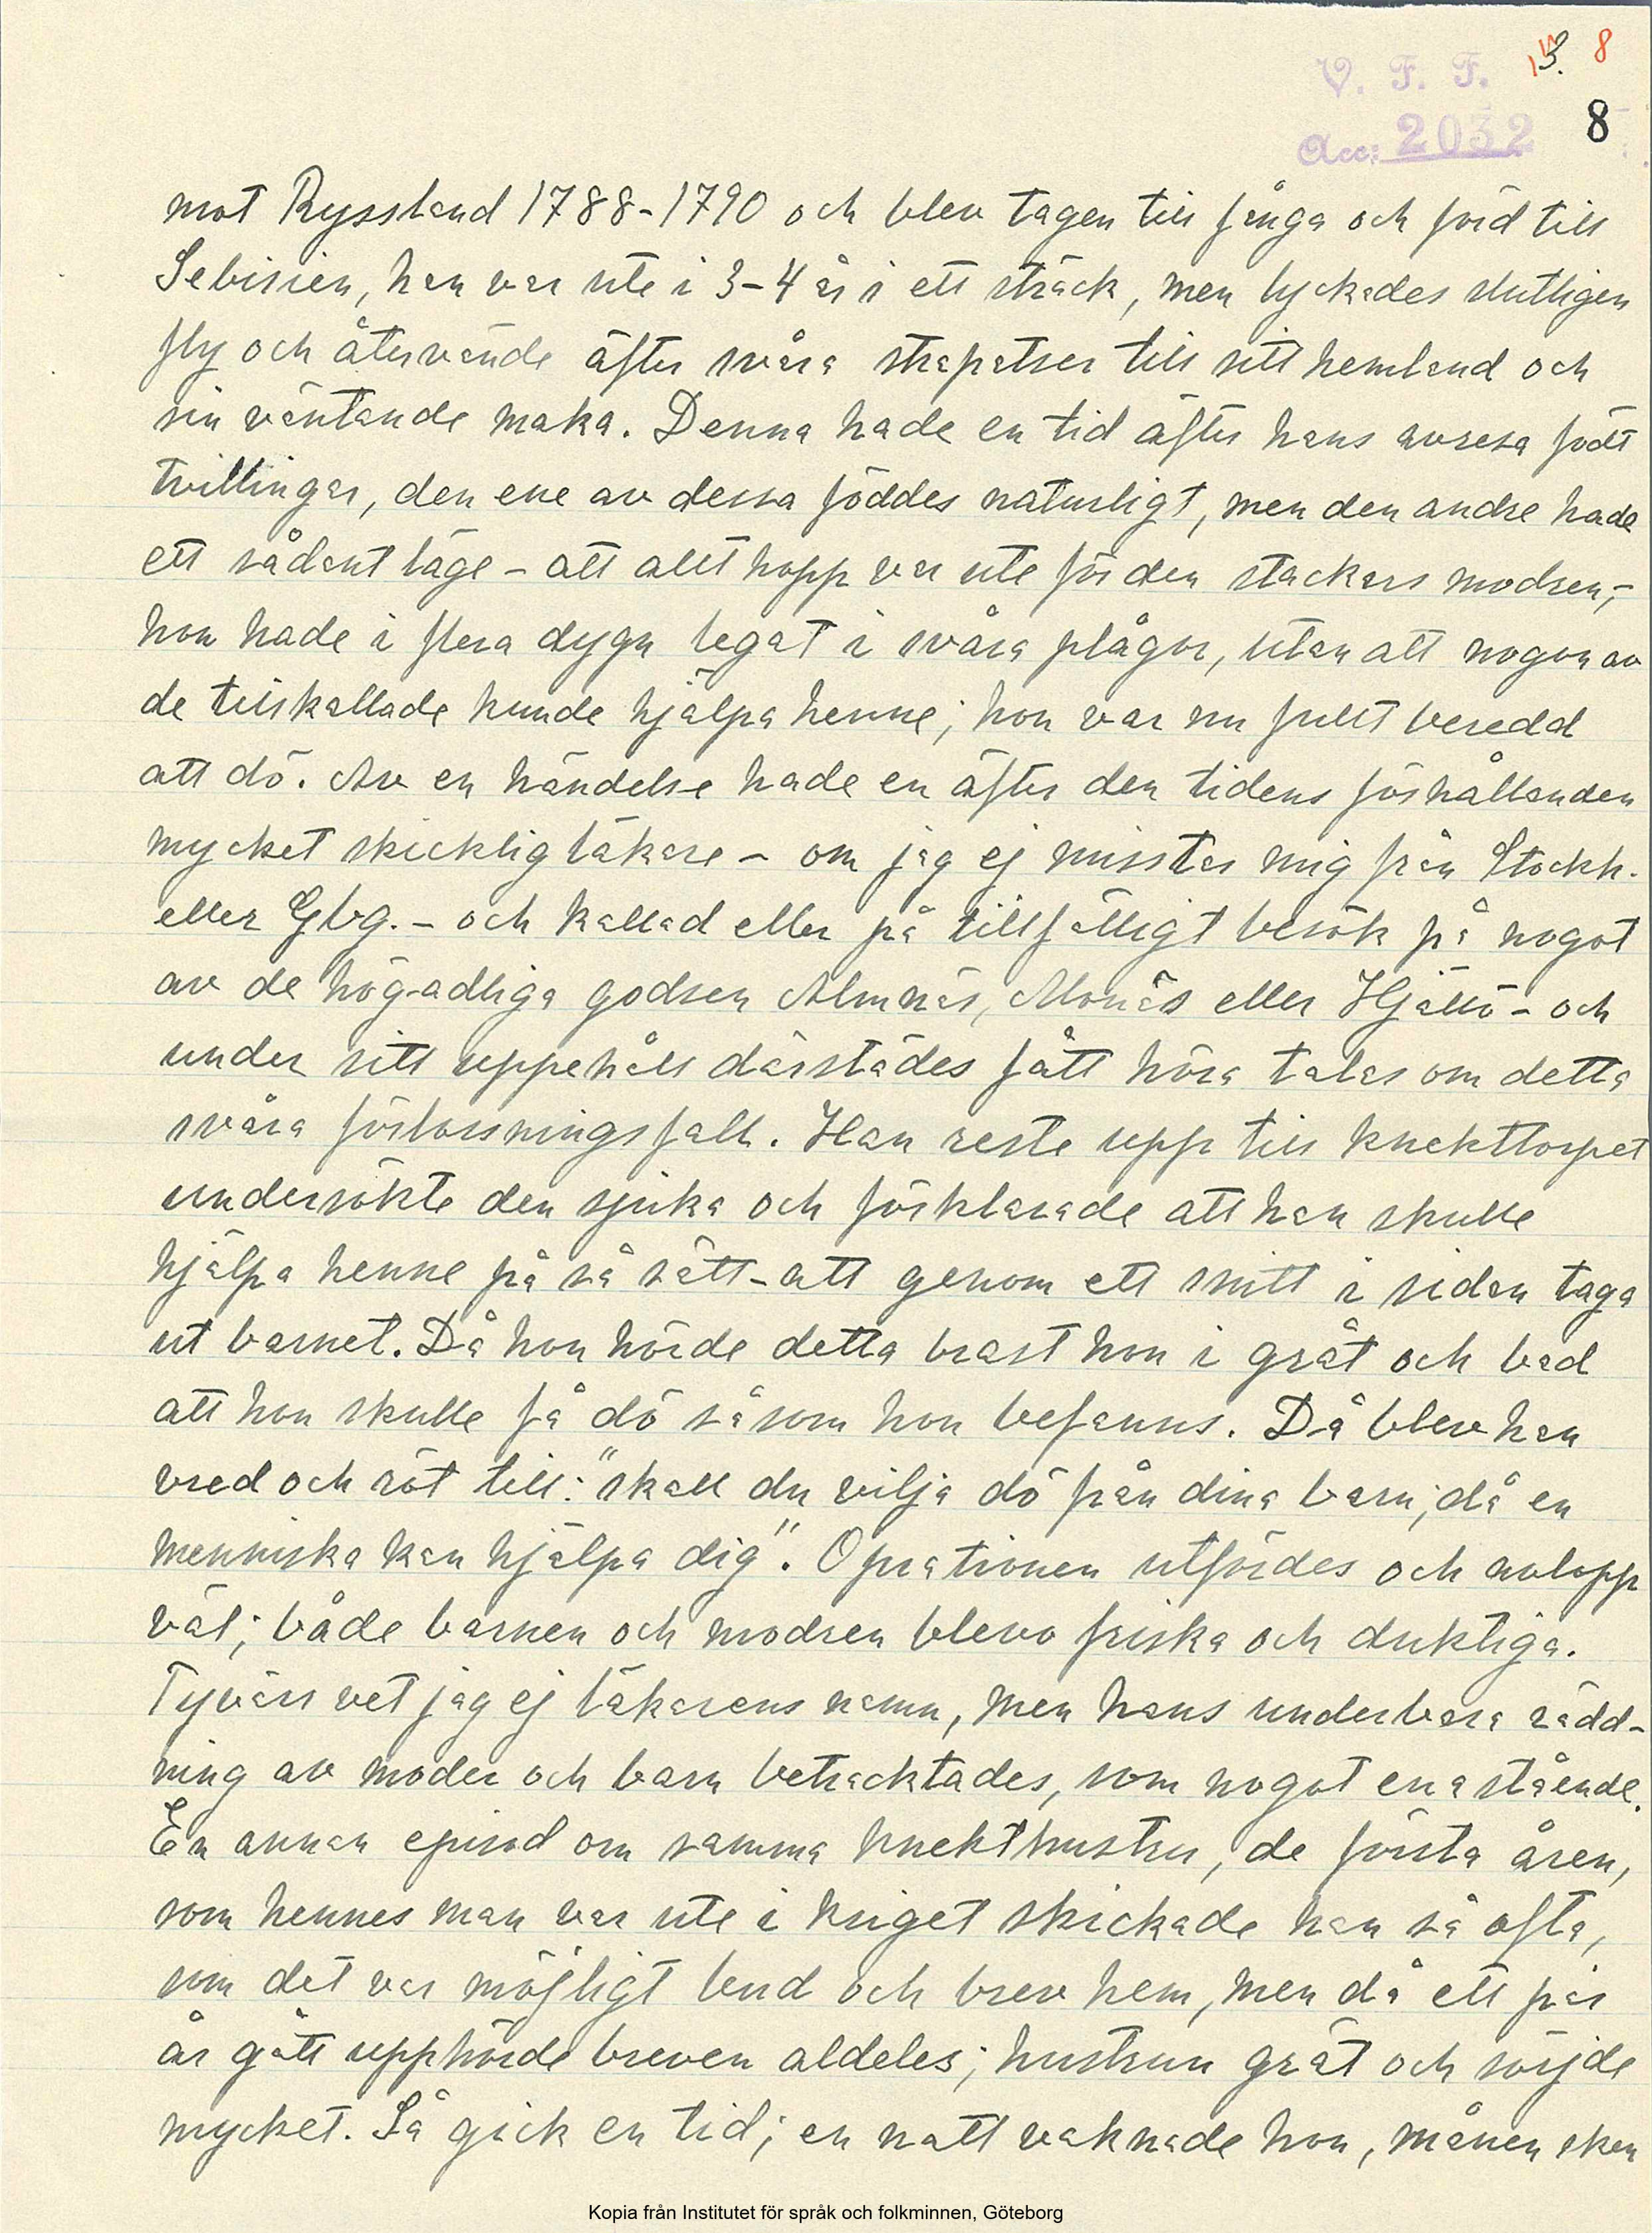 3. 8
V. F. F.
Acc: 2032 8
mot Ryssland 1788-1790 och blev tagen till fånga och förd till
Sebirien, han var ute i 3-4 år i ett sträck, men lyckades slutligen
fly och återvände äfter svåra strapatser till sitt hemland och
sin väntande maka. Denna hade en tid äfter hans avresa födt
tvillingar, den ene av dessa föddes naturligt, men den andre hade
ett sådant läge - att allt hopp var ute för den stackars modren,-
hon hade i flera dygn legat i svåra plågor, utan att nogon av
de tillskallade kunde hjälpa henne; hon var nu fullt beredd
att dö. Av en händelse hade en äfter den tidens förhållanden
mycket skicklig läkare - om jag ej misstar mig från Stockh.
eller Gbg. - och kallad eller på tillfälligt besök på nogot
av de högadliga godsen Almnäs, Monäs eller Hjällö - och
under sitt uppehåll därstädes fått höra talas om detta
svåra förlossningsfall. Han reste upp till knekttorpet
undersökte den sjuka och förklarade att han skulle
hjälpa henne på så sätt - att genom ett snitt i sidan taga
ut barnet. Då hon hörde detta brast hon i gråt och bad
att hon skulle få dö såsom hon befanns. Då blev han
vred och röt till: "skall du vilja dö från dina barn, då en
menniska kan hjälpa dig". Oprationen utfördes och avlopp
väl; både barnen och modren blevo friska och duktiga.
Tyvärr vet jag ej läkarens namn, men hans underbara rädd-
ning av moder och barn betracktades, som nogot enastående.
En annan episod om samma knekthustru, de första åren,
som hennes man var ute i kriget skickade han så ofta,
som det var möjligt bud och brev hem, men då ett par
år gått upphörde breven aldeles; hustrun grät och sörjde
mycket. Så gick en tid; en natt vaknade hon, månen sken
Kopia från Institutet för språk och folkminnen, Göteborg